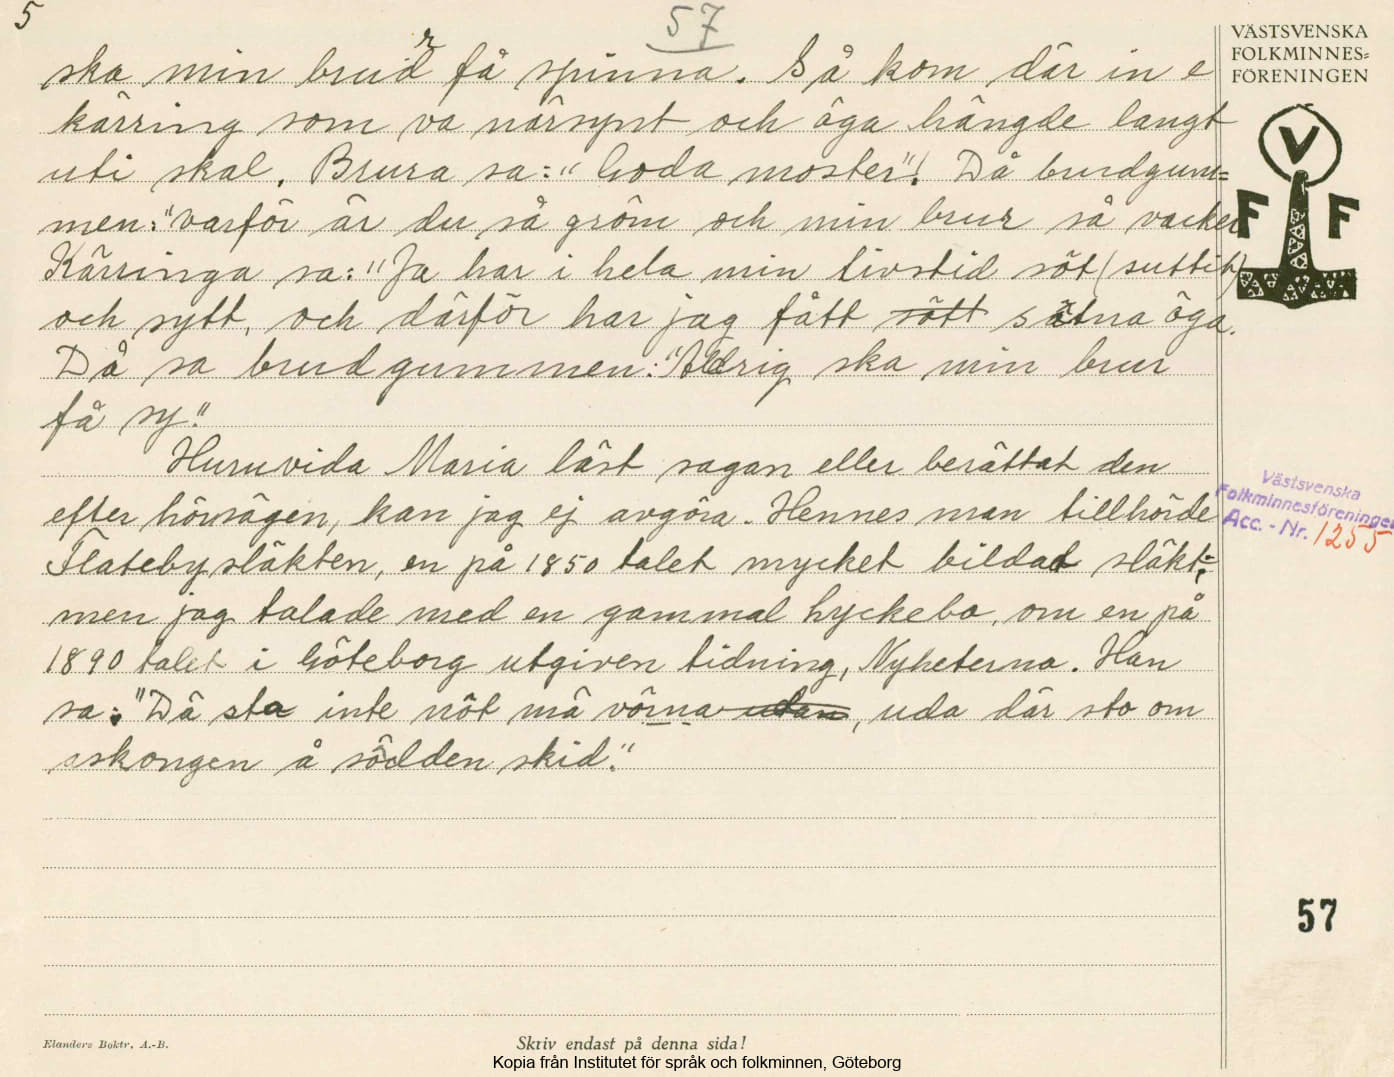 5
57
ska min brur få spinna. Så kom där in e
kärring som va närsynt och öga hängde langt
uti skal. Brura sa: "Goda moster"! Då brudgum=
men: "varför är du så gröm och min brur så vacker
Kärringa sa: "Ja har i hela min livstid söt (suttit)
och sytt, och därför har jag fått sött såtna öga.
Då sa brudgummen: "Aldrig ska min brur
få sy."
Huruvida Maria läst sagan eller berättat den
efter hörsägen, kan jag ej avgöra. Hennes man tillhörde
Flatebysläkten, en på 1850 talet mycket bildad släkt,
men jag talade med en gammal hyckebo, om en på
1890 talet i Göteborg utgiven tidning, Nyheterna. Han
sa: "Dä sta inte nöt mä vörna utan, uda där sto om
askongen å södden skid."
VÄSTSVENSKA
FOLKMINNES=
FÖRENINGEN
V
F F
Västsvenska
Folkminnesföreningen
Acc. - Nr. 1255
57
Elanders Boktr. A.-B.
Skriv endast på denna sida!
Kopia från Institutet för språk och folkminnen, Göteborg